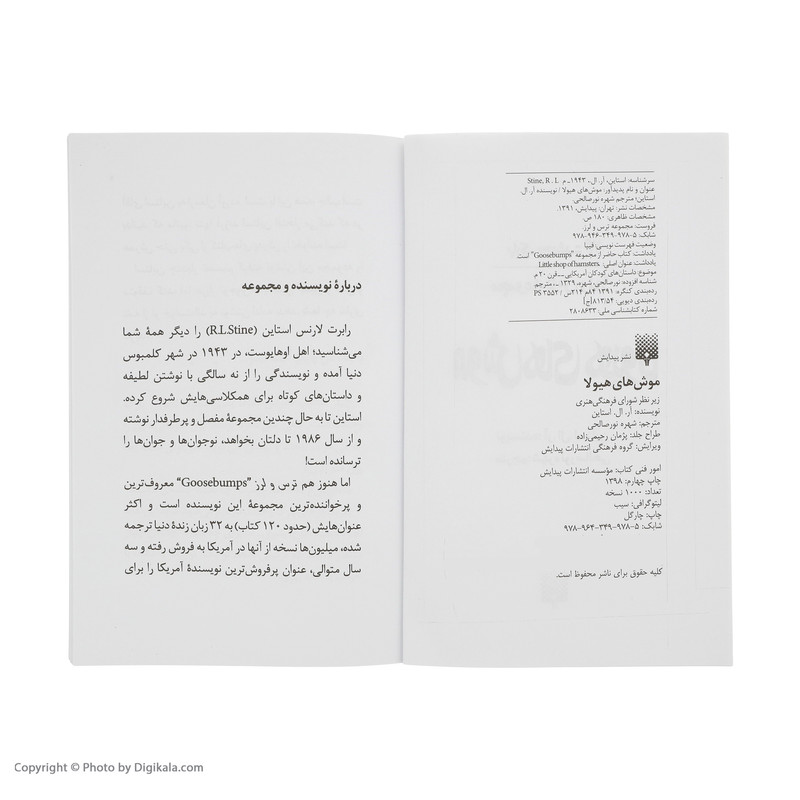 سرشناسه: استاین، آر. ال، ۱۹۴۳ـ م. Stine, R. L
عنوان و نام پدیدآور: موش‌های هیولا / نویسنده آر. ال.
استاین؛ مترجم شهره نورصالحی.
مشخصات نشر: تهران: پیدایش، ۱۳۹۱.
مشخصات ظاهری: ۱۸۰ ص.
فروست: مجموعه ترس و لرز.
شابک: ۵-۹۷۸-۳۴۹-۹۴۶-۹۷۸
وضعیت فهرست نویسی: فیپا
یادداشت: کتاب حاضر از مجموعه "Goosebumps" است
یادداشت: عنوان اصلی: Little shop of hamsters.
موضوع: داستان‌های کودکان آمریکایی ــ قرن ۲۰ م.
شناسه افزوده: نورصالحی، شهره، ۱۳۲۹ ـ، مترجم
رده‌بندی کنگره: ۱۳۹۱ ۸۴م ۲۱۴س / PS ۳۵۵۲
رده‌بندی دیویی: ۸۱۳/۵۴[ج]
شماره کتابشناسی ملی: ۲۸۰۸۶۳۳
نشر پیدایش
موش‌های هیولا
زیر نظر شورای فرهنگی‌هنری
نویسنده: آر. ال. استاین
مترجم: شهره نورصالحی
طراح جلد: پژمان رحیمی‌زاده
ویرایش: گروه فرهنگی انتشارات پیدایش
امور فنی کتاب: مؤسسه انتشارات پیدایش
چاپ چهارم: ۱۳۹۸
تعداد: ۱۰۰۰ نسخه
لیتوگرافی: سیب
چاپ: چارگل
شابک: ۵-۹۷۸-۳۴۹-۹۶۴-۹۷۸
کلیه حقوق برای ناشر محفوظ است.
دربارهٔ نویسنده و مجموعه
رابرت لارنس استاین (R.L.Stine) را دیگر همهٔ شما
می‌شناسید؛ اهل اوهایوست، در ۱۹۴۳ در شهر کلمبوس
دنیا آمده و نویسندگی را از نه سالگی با نوشتن لطیفه
و داستان‌های کوتاه برای همکلاسی‌هایش شروع کرده.
استاین تا به حال چندین مجموعهٔ مفصل و پرطرفدار نوشته
و از سال ۱۹۸۶ تا دلتان بخواهد، نوجوان‌ها و جوان‌ها را
ترسانده است!
اما هنوز هم ترس و لرز "Goosebumps" معروف‌ترین
و پرخواننده‌ترین مجموعهٔ این نویسنده است و اکثر
عنوان‌هایش (حدود ۱۲۰ کتاب) به ۳۲ زبان زندهٔ دنیا ترجمه
شده، میلیون‌ها نسخه از آنها در آمریکا به فروش رفته و سه
سال متوالی، عنوان پرفروش‌ترین نویسندهٔ آمریکا را برای
Copyright © Photo by Digikala.com